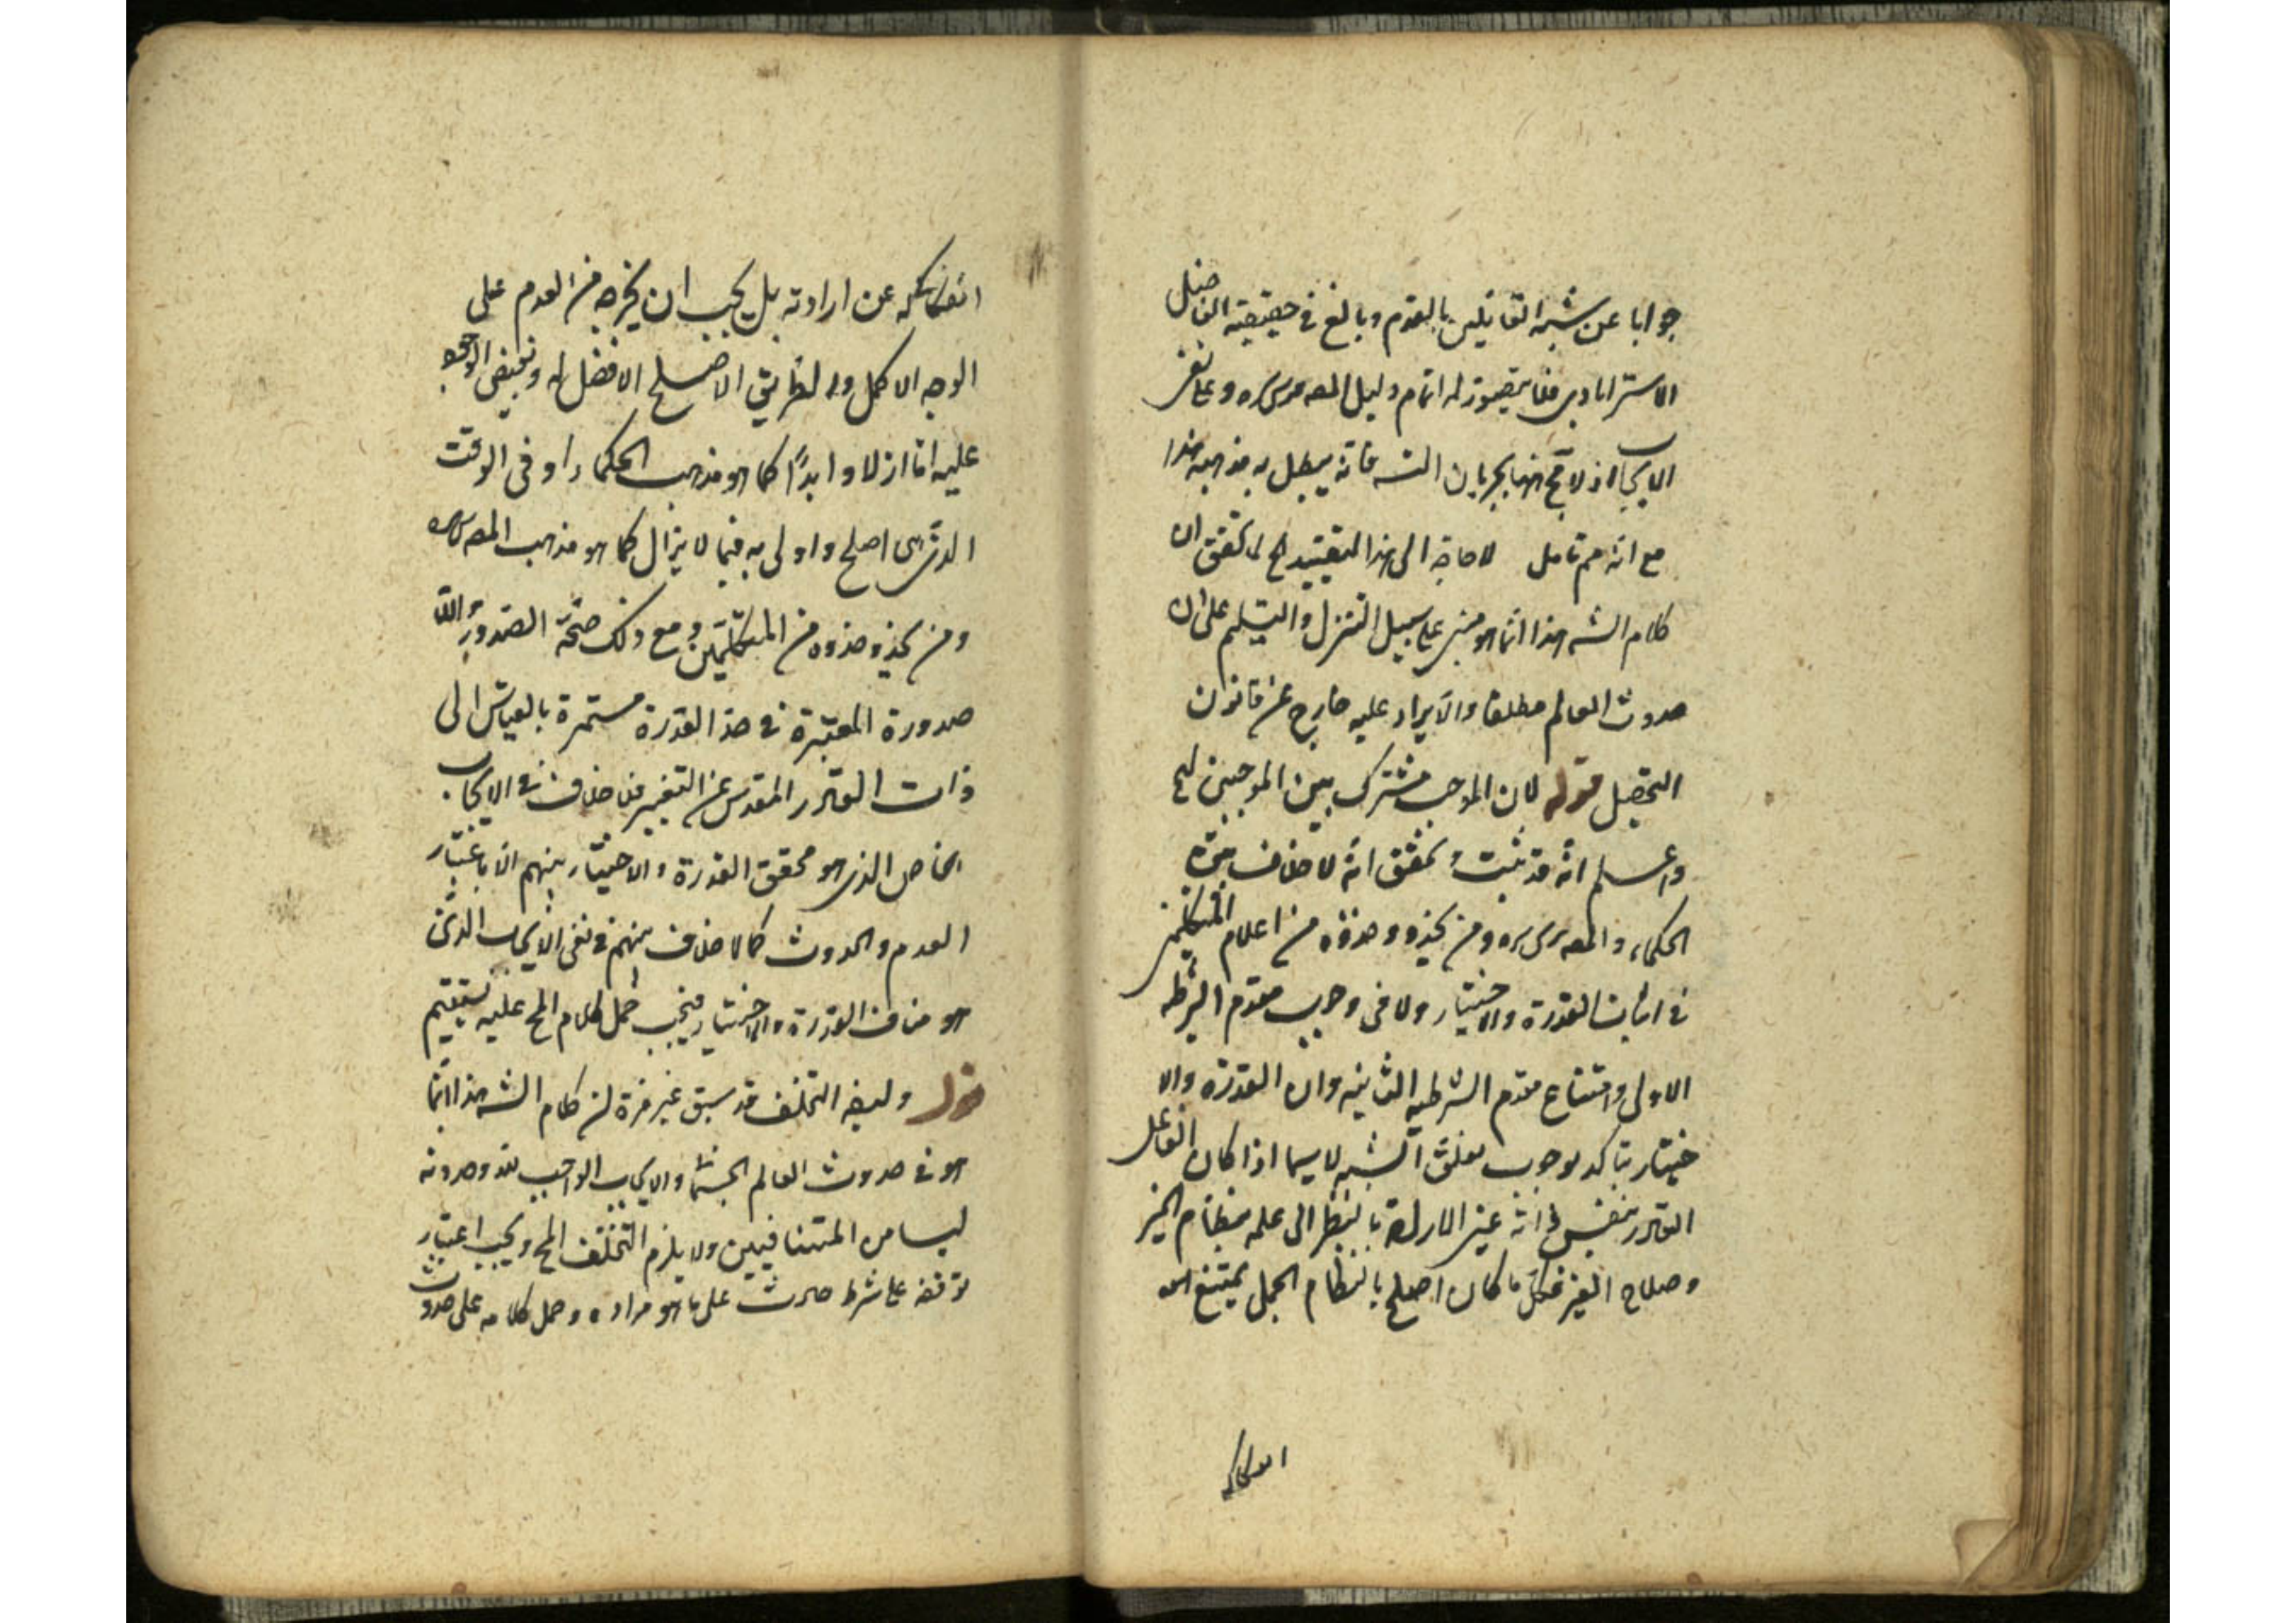 جوابا عن شبه القائلين بالقدم وبالغ في حقيقته الفاضل
الاسترابادي فلا يتصور له اتمام دليل المصه سره وعلى نفى
الايجاب اذ لا بجريان الشه فانه يبطل به مذهبه هذا
مع انه تامل لا حاجة الى هذا التقييد لما تحقق ان
كلام الشه هذا انما هو مبنى على سبيل التنزل والتسليم على ان
حدوث العالم مطلقا والايراد عليه خارج عن قانون
التحصيل قوله لان الموجب مشترك بين الموجبين الخ
واعلم انه قد ثبت وتحقق انه لا خلاف بين
الحكماء والمصه سره ومن يحذو حذوه من اعلام المتكلمين
في اثبات القدرة والاختيار ولا في وجوب مقدم الشرطية
الاولى وامتناع مقدم الشرطية الثانيه وان القدرة والا
ختيار يتاكد بوجوب تعلق المشية لا سيما اذا كان الفاعل
القادر بنفس ذاته عين الارادة بالنظر الى علمه بنظام الخير
وصلاح الغير فكل ما كان اصلح بالنظام الجملى يمتنع
انفكاكه
انفكاكه عن ارادته بل يجب ان يخرجه من العدم على
الوجه الاكمل والطريق الاصلح الافضل له ويفيض الوجود
عليه اما ازلا وابدًا كما هو مذهب الحكماء او في الوقت
الذى اصلح واولى به فيما لا يزال كما هو مذهب المصه سره
ومن يحذو حذوه من المتكلمين ومع ذلك صحة الصدور واللا
صدورة المعتبرة في حد القدرة مستمرة بالقياس الى
ذات القادر المقدس عن التغير فلا خلاف في الايجاب
الخاص الذى هو محقق القدرة والاختيار بينهم الا باعتبار
القدم والحدوث كما لا خلاف بينهم في نفى الايجاب الذى
هو مناف القدرة والاختيار فيجب حمل كلام المح عليه ليستقيم
قوله وليضه التخلف قد سبق غير مرة ان كلام الشه هذا انما
هو في حدوث العالم الجسمانى والايجاب الواجب له وحدوثه
ليسا من المتنافيين ولا يلزم التخلف المح ويجب اعتبار
توقفه على شرط حادث على ما هو مراده وحمل كلامه على حدوث